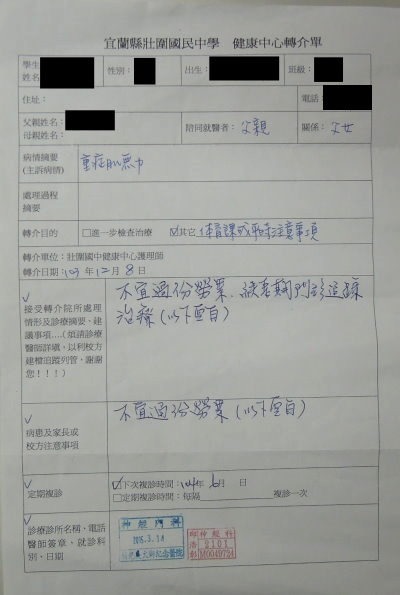 宜蘭縣壯圍國民中學 健康中心轉介單
學生姓名: 性別: 出生: 班級:
住址: 電話
父親姓名: 母親姓名: 陪同就醫者:父親 關係:父女
病情摘要(主訴病情) 重症肌無力
處理過程摘要
轉介目的 □進一步檢查治療 ☑其它 体育課或平時注意事項
轉介單位:壯圍國中健康中心護理師
轉介日期:103年12月8日
✓
接受轉介院所處理
情形及診療摘要、建
議事項....(煩請診療
醫師詳填,以利校方
建檔追蹤列管,謝謝
您!!!)
不宜過份勞累、該長期門診追蹤
治療(以下空白)
✓
病患及家長或
校方注意事項
不宜過份勞累(以下空白)
✓
定期複診
☑下次複診時間:104年6月 日
□定期複診時間:每隔 複診一次
✓
診療診所名稱、電話
醫師簽章、就診科
別、日期
神經內科
2015.3.14
紀念醫院
神經科
2101
M0049724